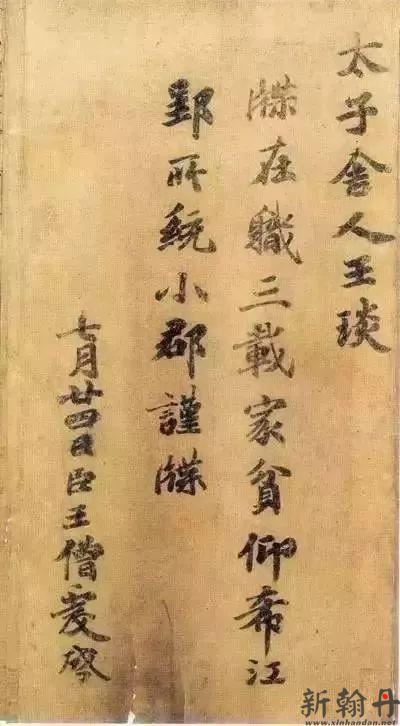 太子舍人王琰
牒在職三載家貧仰希江
郢所統小郡謹牒
七月廿四日臣王僧虔啓
新翰丹
www.xinhandan.net